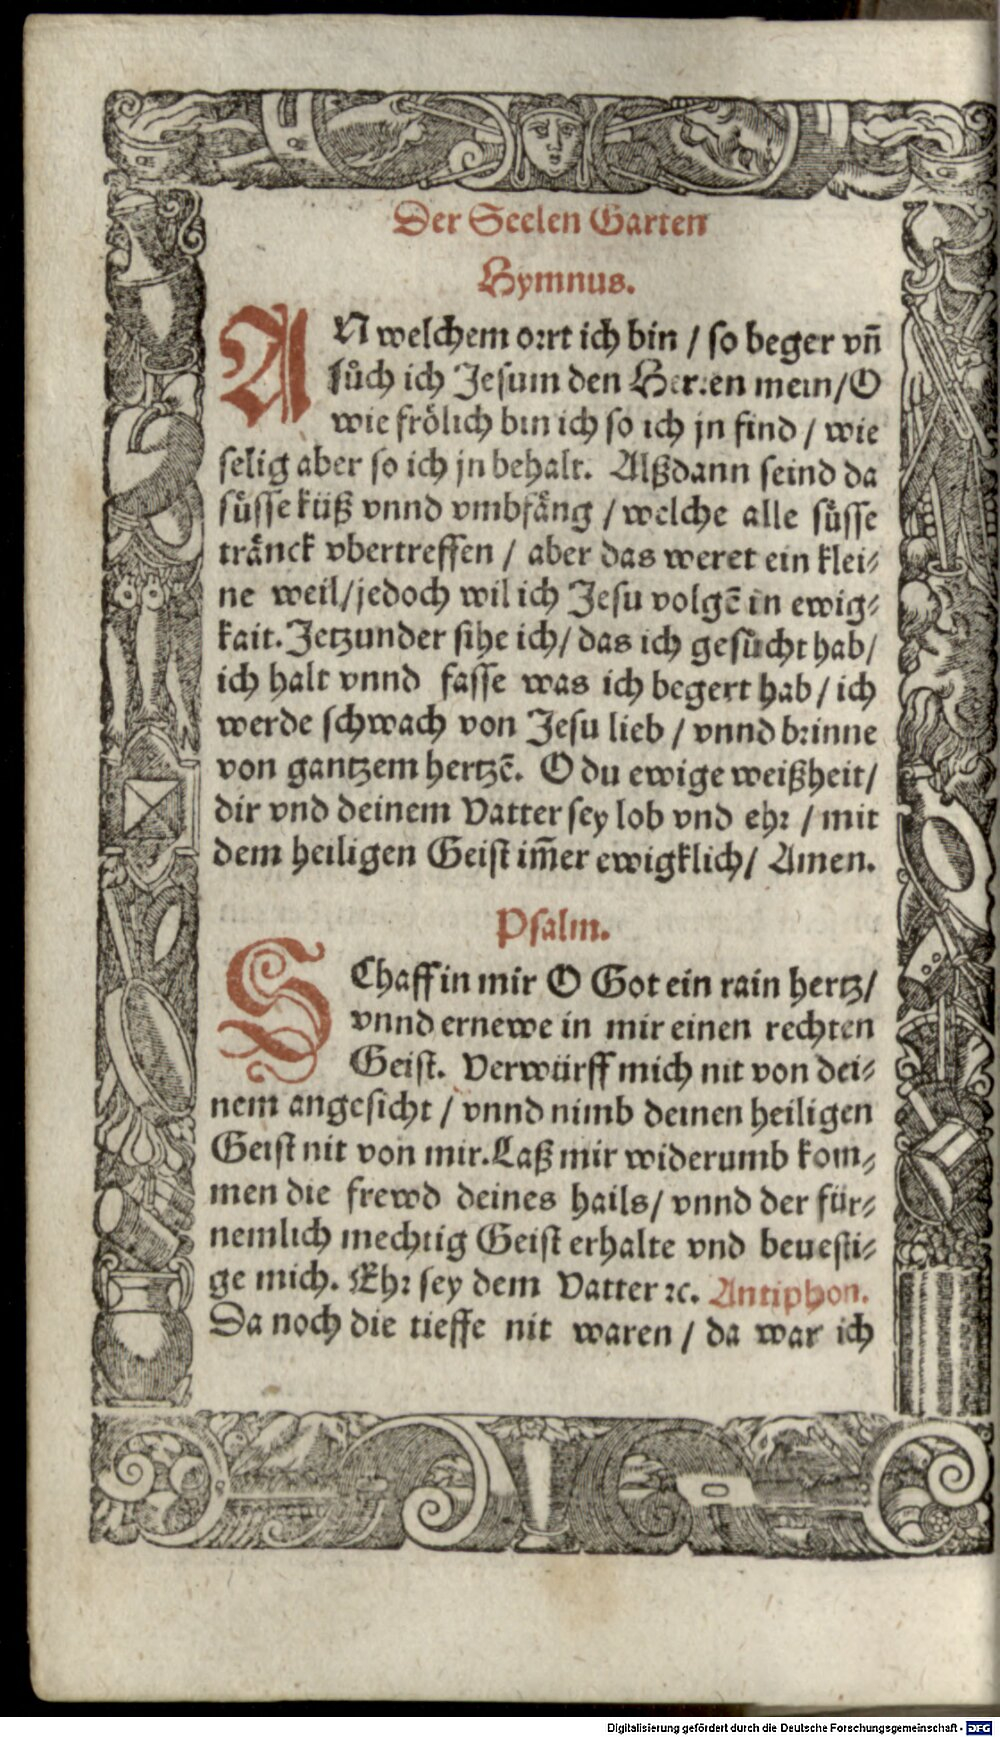 Der Seelen Garten
Hymnus.
AN welchem orrt ich bin / so beger vñ
sůch ich Jesum den Herren mein/ O
wie frölich bin ich so ich jn find / wie
selig aber so ich jn behalt. Alßdann seind da
süsse küß vnnd vmbfäng / welche alle süsse
tränck vbertreffen / aber das weret ein klei⸗
ne weil/ jedoch wil ich Jesu volgē in ewig⸗
kait. Jetzunder sihe ich/ das ich gesůcht hab/
ich halt vnnd fasse was ich begert hab / ich
werde schwach von Jesu lieb / vnnd brinne
von gantzem hertzē. O du ewige weißheit/
dir vnd deinem Vatter sey lob vnd ehr / mit
dem heiligen Geist im̃er ewigklich/ Amen.
Psalm.
SChaff in mir O Got ein rain hertz/
vnnd ernewe in mir einen rechten
Geist. Verwürff mich nit von dei⸗
nem angesicht / vnnd nimb deinen heiligen
Geist nit von mir. Laß mir widerumb kom⸗
men die frewd deines hails/ vnnd der für⸗
nemlich mechtig Geist erhalte vnd beuesti⸗
ge mich. Ehr sey dem Vatter ꝛc. Antiphon.
Da noch die tieffe nit waren / da war ich
Digitalisierung gefördert durch die Deutsche Forschungsgemeinschaft - DFG